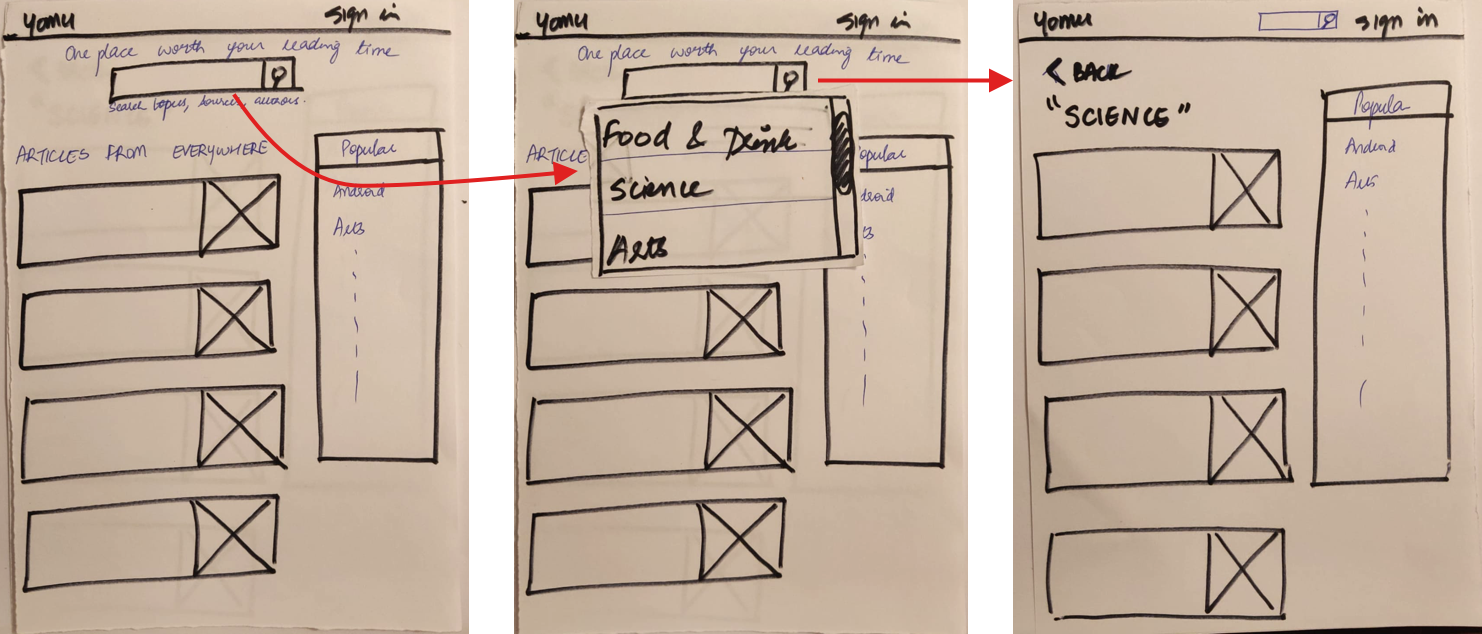 Yomu
Sign in
One place worth your reading time
Search topics, sources, authors.
ARTICLES FROM EVERYWHERE
Popular
Android
Arts
Yomu
Sign in
One place worth your reading time
Food & Drink
Science
Arts
ARTICLE
opular
droid
ts
Yomu
Sign in
< BACK
"SCIENCE"
Popular
Android
Arts